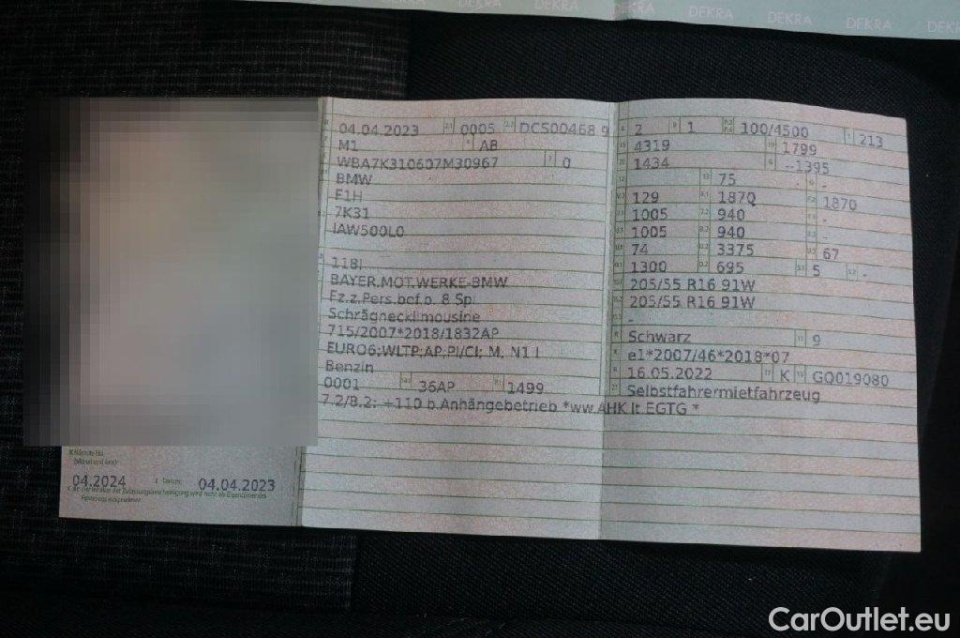 DEKRA DEKRA DEKRA DEKRA DEKRA DEKRA
04.04.2023 0005 DCS00468 9
M1 AB
WBA7K310607M30967 0
BMW
F1H
7K31
IAW500L0
118I
BAYER.MOT.WERKE-BMW
Fz.z.Pers.bef.b. 8 Spl.
Schrägheckl­imousine
715/2007*2018/1832AP
EURO6;WLTP;AP;PI/CI; M, N1 I
Benzin
0001 36AP 1499
7.2/8.2: +110 b.Anhängebetrieb *ww.AHK lt.EGTG *
2 1 100/4500 213
4319 1799
1434 --1395
- 75 -
129 1870 1870
1005 940 -
1005 940 -
74 3375 67
1300 695 5 -
205/55 R16 91W
205/55 R16 91W
-
Schwarz 9
e1*2007/46*2018*07
16.05.2022 K GQ019080
Selbstfahrermietfahrzeug
04.2024 04.04.2023
CarOutlet.eu